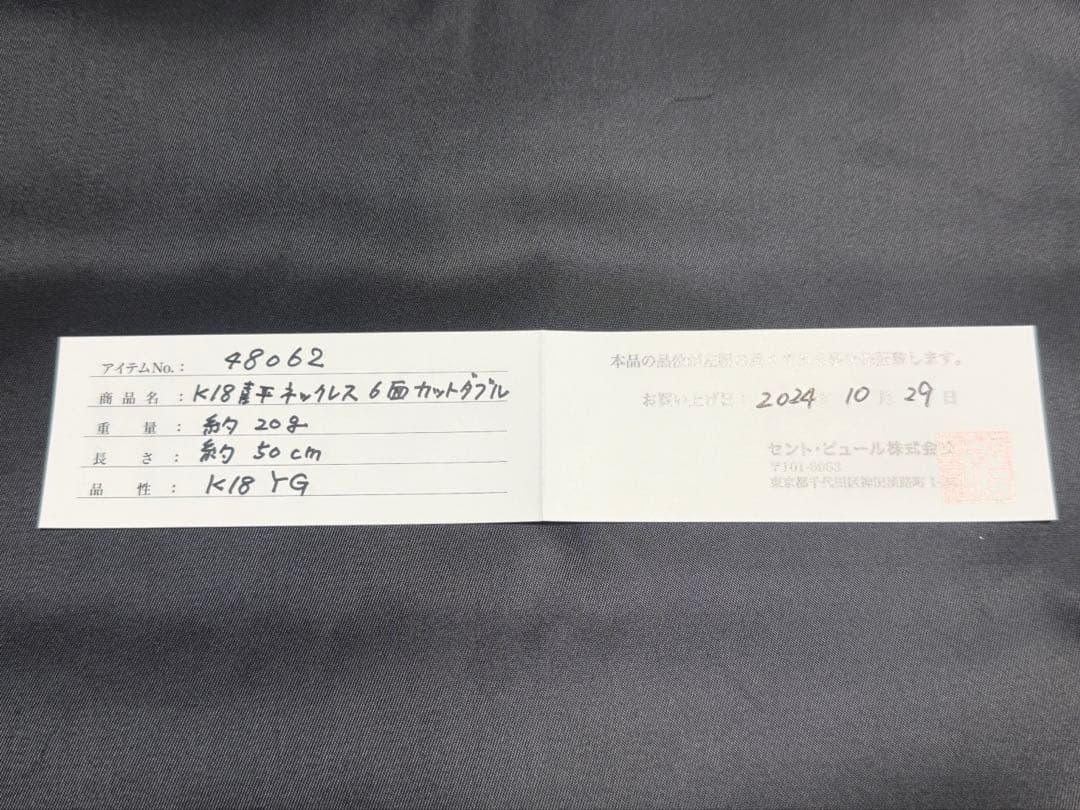 アイテムNo.： 48062
商品名：K18喜平ネックレス 6面カットダブル
重量：約 20g
長さ：約 50cm
品性：K18 YG
本品の品位が左記の します。
お買い上げ日：2024年 10月 29日
セント・ピュール株式会社
〒101-0063
東京都千代田区神田淡路町